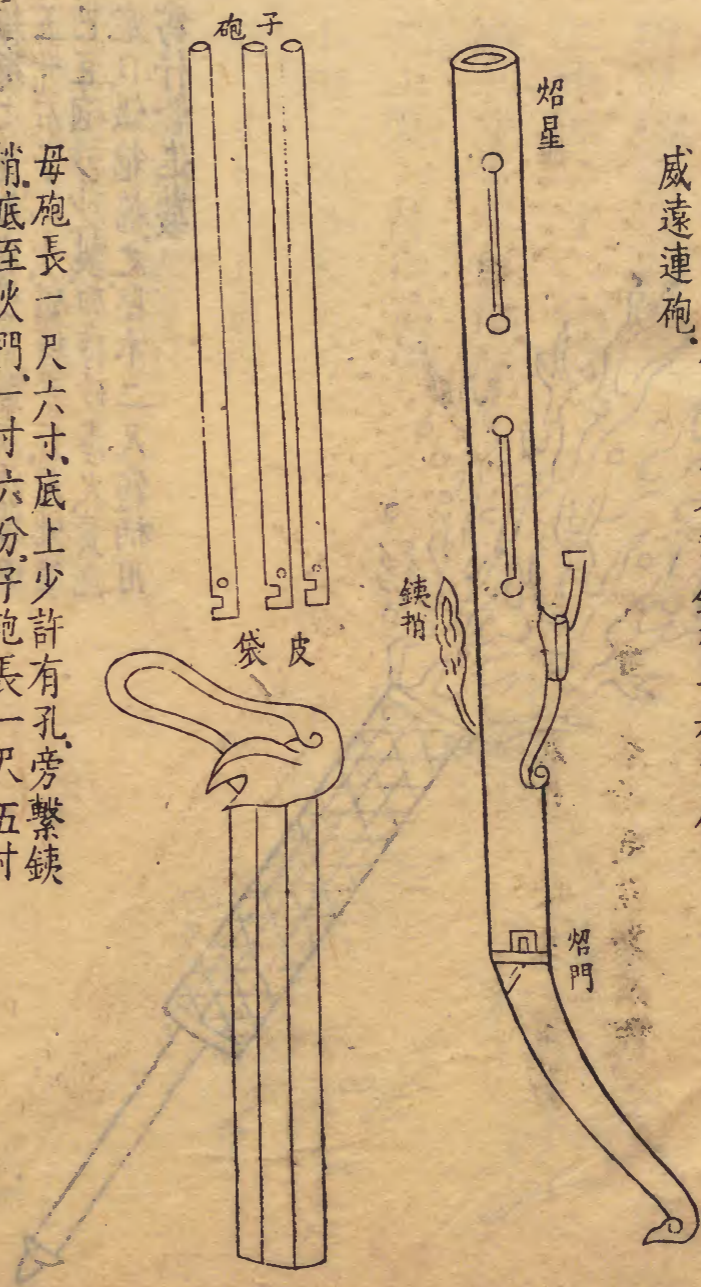 威遠連砲
炤星
炤門
銕梢
子砲
皮袋
母砲長一尺六寸底上少許有孔旁繫銕
梢底至火門一寸六分子砲長一尺五寸